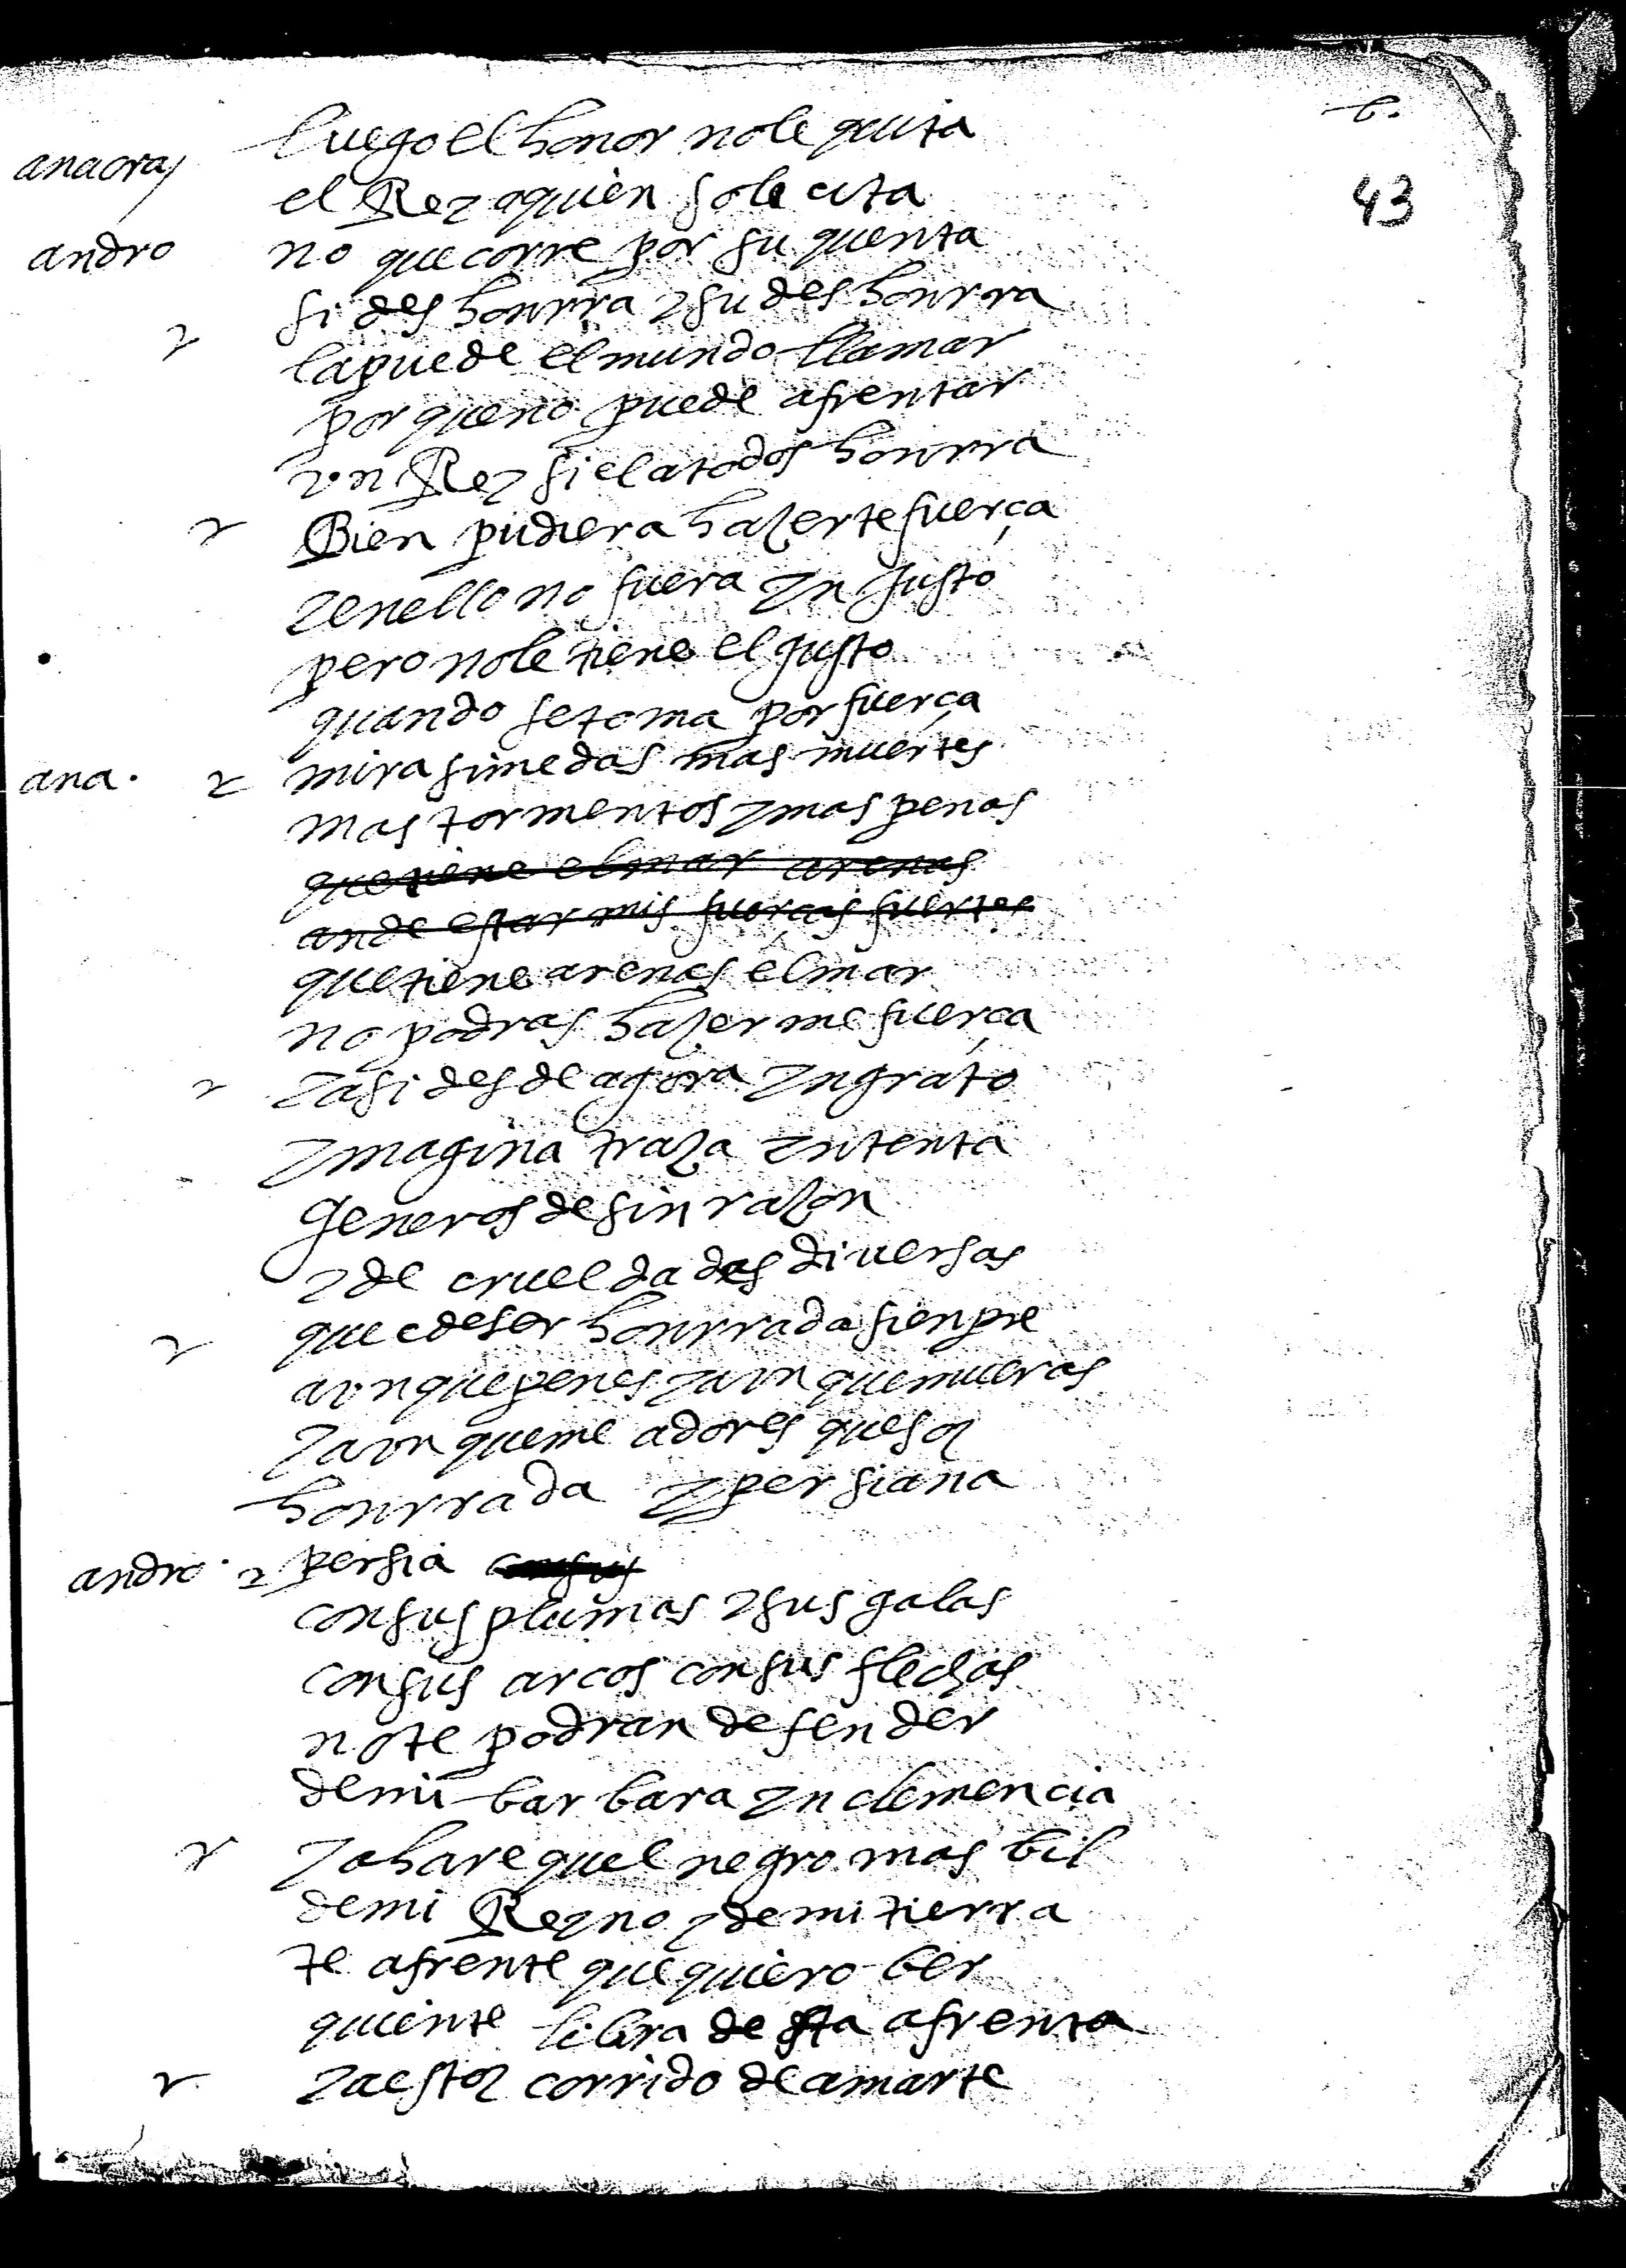 6.
43
anaoray luego el honor no le quita
el Rey a quien solicita
andro no que corre por su quenta
si deshonrra y su deshonrra
la puede el mundo llamar
porque no puede afrentar
vn Rey si el a todos honrra
Bien pudiera hazerte fuerça
y en ello no fuera ynjusto
pero no le tiene el gusto
quando se toma por fuerça
ana. mira si me das mas muertes
mas tormentos y mas penas
que tiene el mar arenas
an de estar mis fuerças fuertes
que tiene arenas el mar
no podras hazerme fuerça
y asi desde agora yngrato
ymagina traza yntenta
generos de sin razon
y de crueldades diuersas
que e de ser honrrada sienpre
avnque penes y avnque mueras
y avnque me adores que soy
honrrada y persiana
andro. persia con sus
con sus plumas y sus galas
con sus arcos con sus flechas
no te podran defender
de mi barbara ynclemencia
yo hare quel negro mas bil
de mi Reyno y de mi tierra
te afrente que quiero ber
quien te libra desta afrenta
ya estoy corrido de amarte